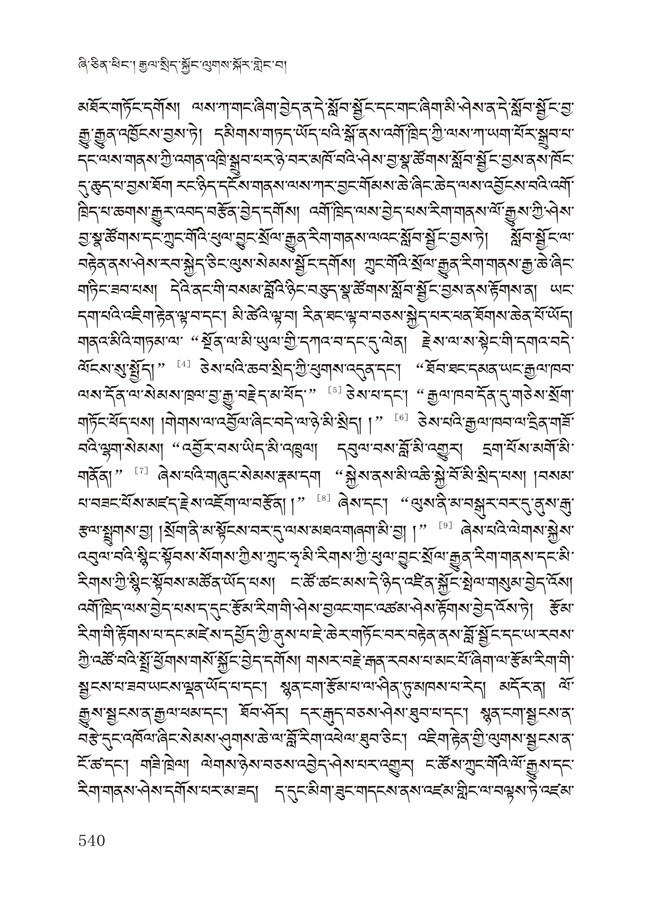 ཞི་ཅིན་ཕིང་། རྒྱལ་སྲིད་སྐྱོང་ལུགས་སྐོར་གླེང་བ།
མཐོར་གཏོང་དགོས། ལས་ཀ་གང་ཞིག་བྱེད་ན་དེ་སློབ་སྦྱོང་དང་གང་ཞིག་མི་ཤེས་ན་དེ་སློབ་སྦྱོང་བྱ་
རྒྱུ་རྒྱུན་འཁྱོངས་བྱས་ཏེ། དམིགས་གཏད་ཡོད་པའི་སྒོ་ནས་འགོ་ཁྲིད་ཀྱི་ལས་ཀ་ཡག་པོར་སྒྲུབ་པ་
དང་ལས་གནས་ཀྱི་འགན་འཁྲི་སྒྲུབ་པར་ཉེ་བར་མཁོ་བའི་ཤེས་བྱ་སྣ་ཚོགས་སློབ་སྦྱོང་བྱས་ནས་ཁོང་
དུ་ཆུད་པ་བྱས་ཐོག རང་ཉིད་དངོས་གནས་ལས་ཀར་བྱང་གོམས་ཆེ་ཞིང་ཆེད་ལས་འབྱོངས་པའི་འགོ་
ཁྲིད་པ་ཆགས་རྒྱུར་འབད་བརྩོན་བྱེད་དགོས། འགོ་ཁྲིད་ལས་བྱེད་པས་རིག་གནས་ལོ་རྒྱུས་ཀྱི་ཤེས་
བྱ་སྣ་ཚོགས་དང་ཀྲུང་གོའི་ཕུལ་བྱུང་སྲོལ་རྒྱུན་རིག་གནས་ལའང་སློབ་སྦྱོང་བྱས་ཏེ། སློབ་སྦྱོང་ལ་
བརྟེན་ནས་ཤེས་རབ་སྐྱེད་ཅིང་ལུས་སེམས་སྦྱོང་དགོས། ཀྲུང་གོའི་སྲོལ་རྒྱུན་རིག་གནས་རྒྱ་ཆེ་ཞིང་
གཏིང་ཟབ་པས། དེའི་ནང་གི་བསམ་བློའི་ཉིང་བཅུད་སྣ་ཚོགས་སློབ་སྦྱོང་བྱས་ནས་རྟོགས་ན། ཡང་
དག་པའི་འཇིག་རྟེན་ལྟ་བ་དང་། མི་ཚེའི་ལྟ་བ། རིན་ཐང་ལྟ་བ་བཅས་སྐྱེད་པར་ཕན་ཐོགས་ཆེན་པོ་ཡོད།
གནའ་མིའི་གཏམ་ལ་ “སྔོན་ལ་མི་ཡུལ་གྱི་དཀའ་བ་དང་དུ་ལེན། རྗེས་ལ་ས་སྟེང་གི་དགའ་བདེ་
ལོངས་སུ་སྤྱོད།” [4] ཅེས་པའི་ཆབ་སྲིད་ཀྱི་ཕུགས་འདུན་དང་། “ཐོབ་ཐང་དམན་ཡང་རྒྱལ་ཁབ་
ལས་དོན་ལ་སེམས་ཁྲལ་བྱ་རྒྱུ་བརྗེད་མ་མྱོང་” [5] ཅེས་པ་དང་། “རྒྱལ་ཁབ་དོན་དུ་གཅེས་སྲོག་
གཏོང་ཕོད་པས། །གེགས་ལ་འབྱོལ་ཞིང་བདེ་ལ་ཉེ་མི་སྲིད། །” [6] ཅེས་པའི་རྒྱལ་ཁབ་ལ་དྲིན་གཟོ་
བའི་ལྷག་སེམས། “འབྱོར་བས་ཡིད་མི་འཁྲུལ། དབུལ་བས་བློ་མི་འགྱུར། དྲག་པོས་མགོ་མི་
གནོན།” [7] ཞེས་པའི་གཞུང་སེམས་རྣམ་དག “སྐྱེས་ནས་མི་འཆི་སྐྱེ་བོ་མི་སྲིད་པས། །བསམ་
པ་བཟང་པོས་མཛད་རྗེས་འཇོག་ལ་བརྩོན། །” [8] ཞེས་དང་། “ལུས་ནི་མ་བསྐྱུར་བར་དུ་ནུས་རྒུ་
རྩལ་སྤྲུགས་བྱ། །སྲོག་ནི་མ་སྟོངས་བར་དུ་ལས་མཐའ་གཞག་མི་བྱ། །” [9] ཞེས་པའི་ལེགས་སྐྱེས་
འབུལ་བའི་སྙིང་སྟོབས་སོགས་ཀྱིས་ཀྲུང་ཧྭ་མི་རིགས་ཀྱི་ཕུལ་བྱུང་སྲོལ་རྒྱུན་རིག་གནས་དང་མི་
རིགས་ཀྱི་སྙིང་སྟོབས་མཚོན་ཡོད་པས། ང་ཚོ་ཚང་མས་དེ་ཉིད་འཛིན་སྐྱོང་སྤེལ་གསུམ་བྱེད་འོས།
འགོ་ཁྲིད་ལས་བྱེད་པས་ད་དུང་རྩོམ་རིག་གི་ཤེས་བྱའང་གང་འཚམ་ཤེས་རྟོགས་བྱེད་འོས་ཏེ། རྩོམ་
རིག་གི་རྟོགས་པ་དང་མཛེས་དཔྱོད་ཀྱི་ནུས་པ་ཇེ་ཆེར་གཏོང་བར་བརྟེན་ནས་བློ་སྦྱོང་དང་ཡ་རབས་
ཀྱི་འཚོ་བའི་སྤྲོ་ཕྱོགས་གསོ་སྐྱོང་བྱེད་དགོས། གསར་བརྗེ་རྒན་རབས་པ་མང་པོ་ཞིག་ལ་རྩོམ་རིག་གི་
སྦྱངས་པ་ཟབ་ཡངས་ལྡན་ཡོད་པ་དང་། སྙན་ངག་རྩོམ་པ་ལ་ཤིན་ཏུ་མཁས་པ་རེད། མདོར་ན། ལོ་
རྒྱུས་སྦྱངས་ན་རྒྱལ་ཕམ་དང་། ཐོབ་ཤོར། དར་རྒུད་བཅས་ཤེས་ཐུབ་པ་དང་། སྙན་ངག་སྦྱངས་ན་
བརྩེ་དུང་འཁོལ་ཞིང་སེམས་ཤུགས་ཆེ་ལ་བློ་རིག་འཕེལ་ཐུབ་ཅིང་། འཇིག་རྟེན་གྱི་ལུགས་སྦྱངས་ན་
ངོ་ཚ་དང་། གཟི་ཁྲེལ། ལེགས་ཉེས་བཅས་འབྱེད་ཤེས་པར་འགྱུར། ང་ཚོས་ཀྲུང་གོའི་ལོ་རྒྱུས་དང་
རིག་གནས་ཤེས་དགོས་པར་མ་ཟད། ད་དུང་མིག་ཟུང་གདངས་ནས་འཛམ་གླིང་ལ་བལྟས་ཏེ་འཛམ་
540